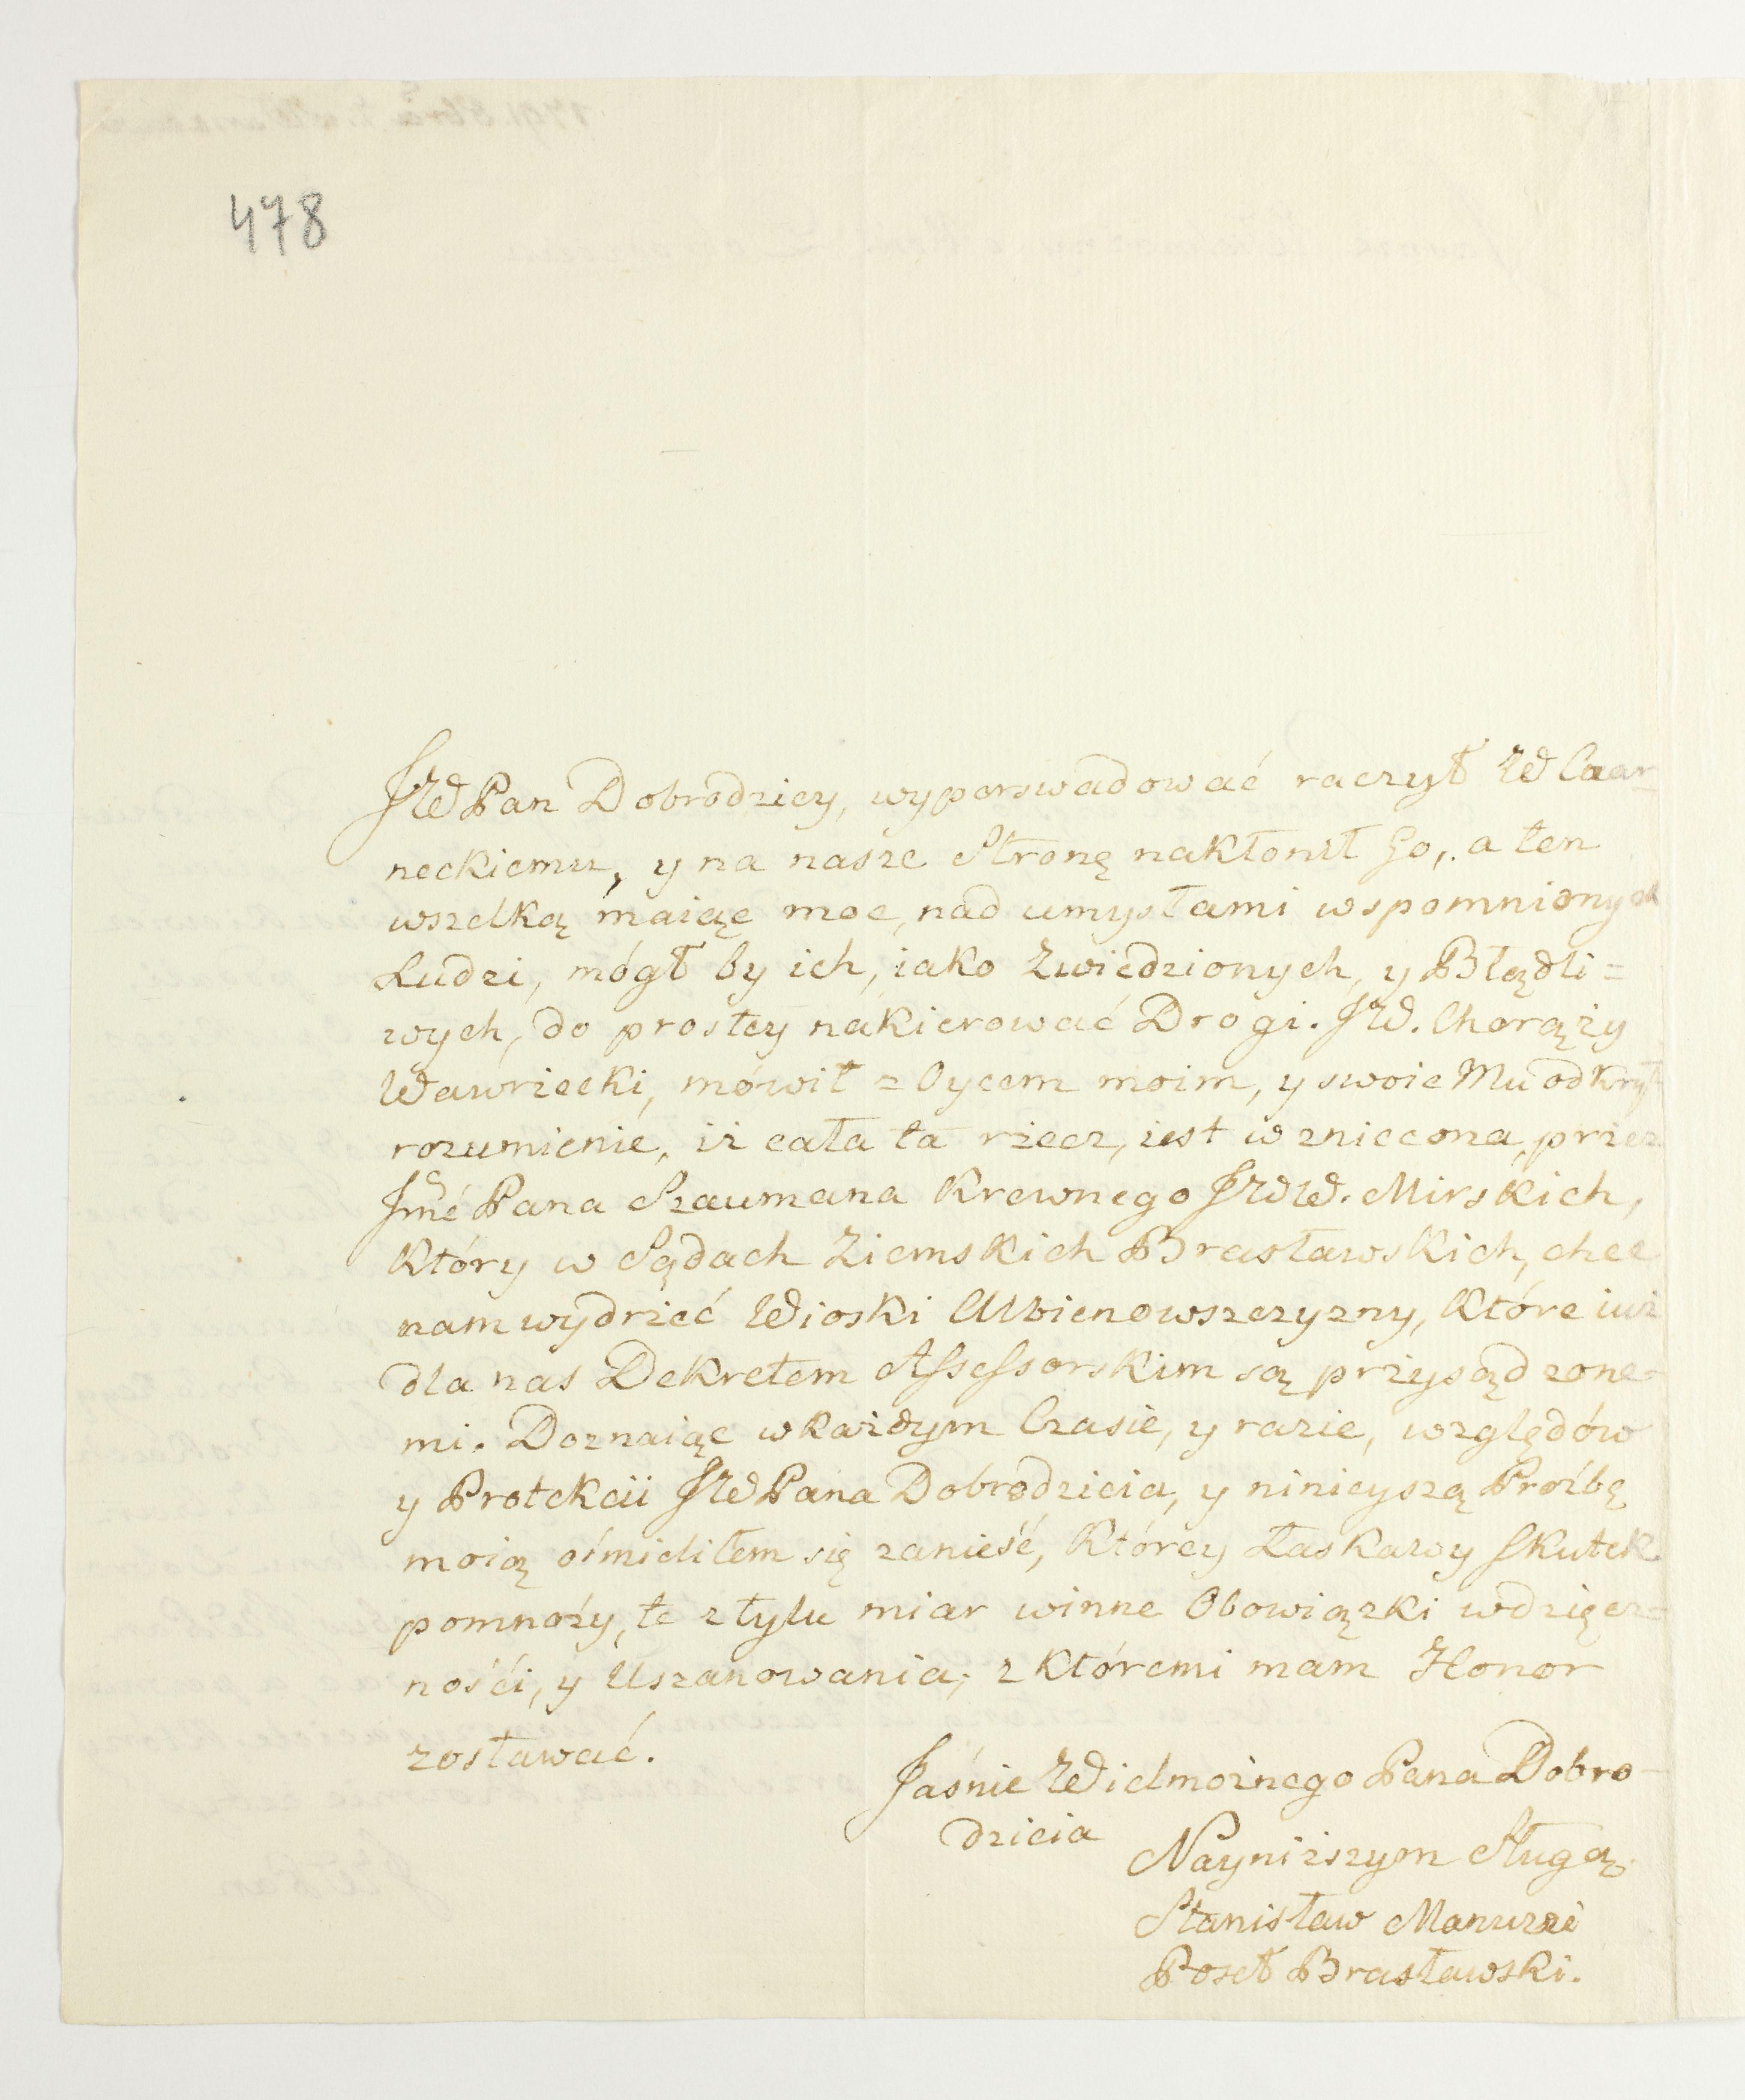 478
JW Pan Dobrodziey, wyperswadować raczył W Czar-
neckiemu, y na nasze Stronę nakłonił Go, a ten
wszelką maiąc moc, nad umysłami wspomnionych
Ludzi, mógł by ich, iako Zwiedzionych, y Błądli=
wych, do prostey nakierować Drogi. JW. Chorąży
Wawrzecki, mówił z Oycem moim, y swoie Mu odkrył
rozumienie, iż cała ta rzecz, iest wzniecona, przez
Jmć Pana Szaumana Krewnego JWW. Mirskich,
Który w Sądach Ziemskich Brasławskich, chce
nam wydrzeć Wioski Ulbienowszczyzny, Które iuż
dla nas Dekretem Assessorskim są przysądzone-
mi. Doznaiąc w każdym Czasie, y razie, względów
y Protekcii JW Pana Dobrodzieia, y ninieyszą Proźbę
moią ośmieliłem się zanieść, Którey Łaskawy Skutek
pomnoży, te z tylu miar winne Obowiązki wdzięcz=
nośći, y Uszanowania, z Któremi mam Honor
zostawać.
Jaśnie Wielmożnego Pana Dobro-
dzieia
Nayniższym Sługą
Stanisław Manuzzi
Poseł Brasławski.